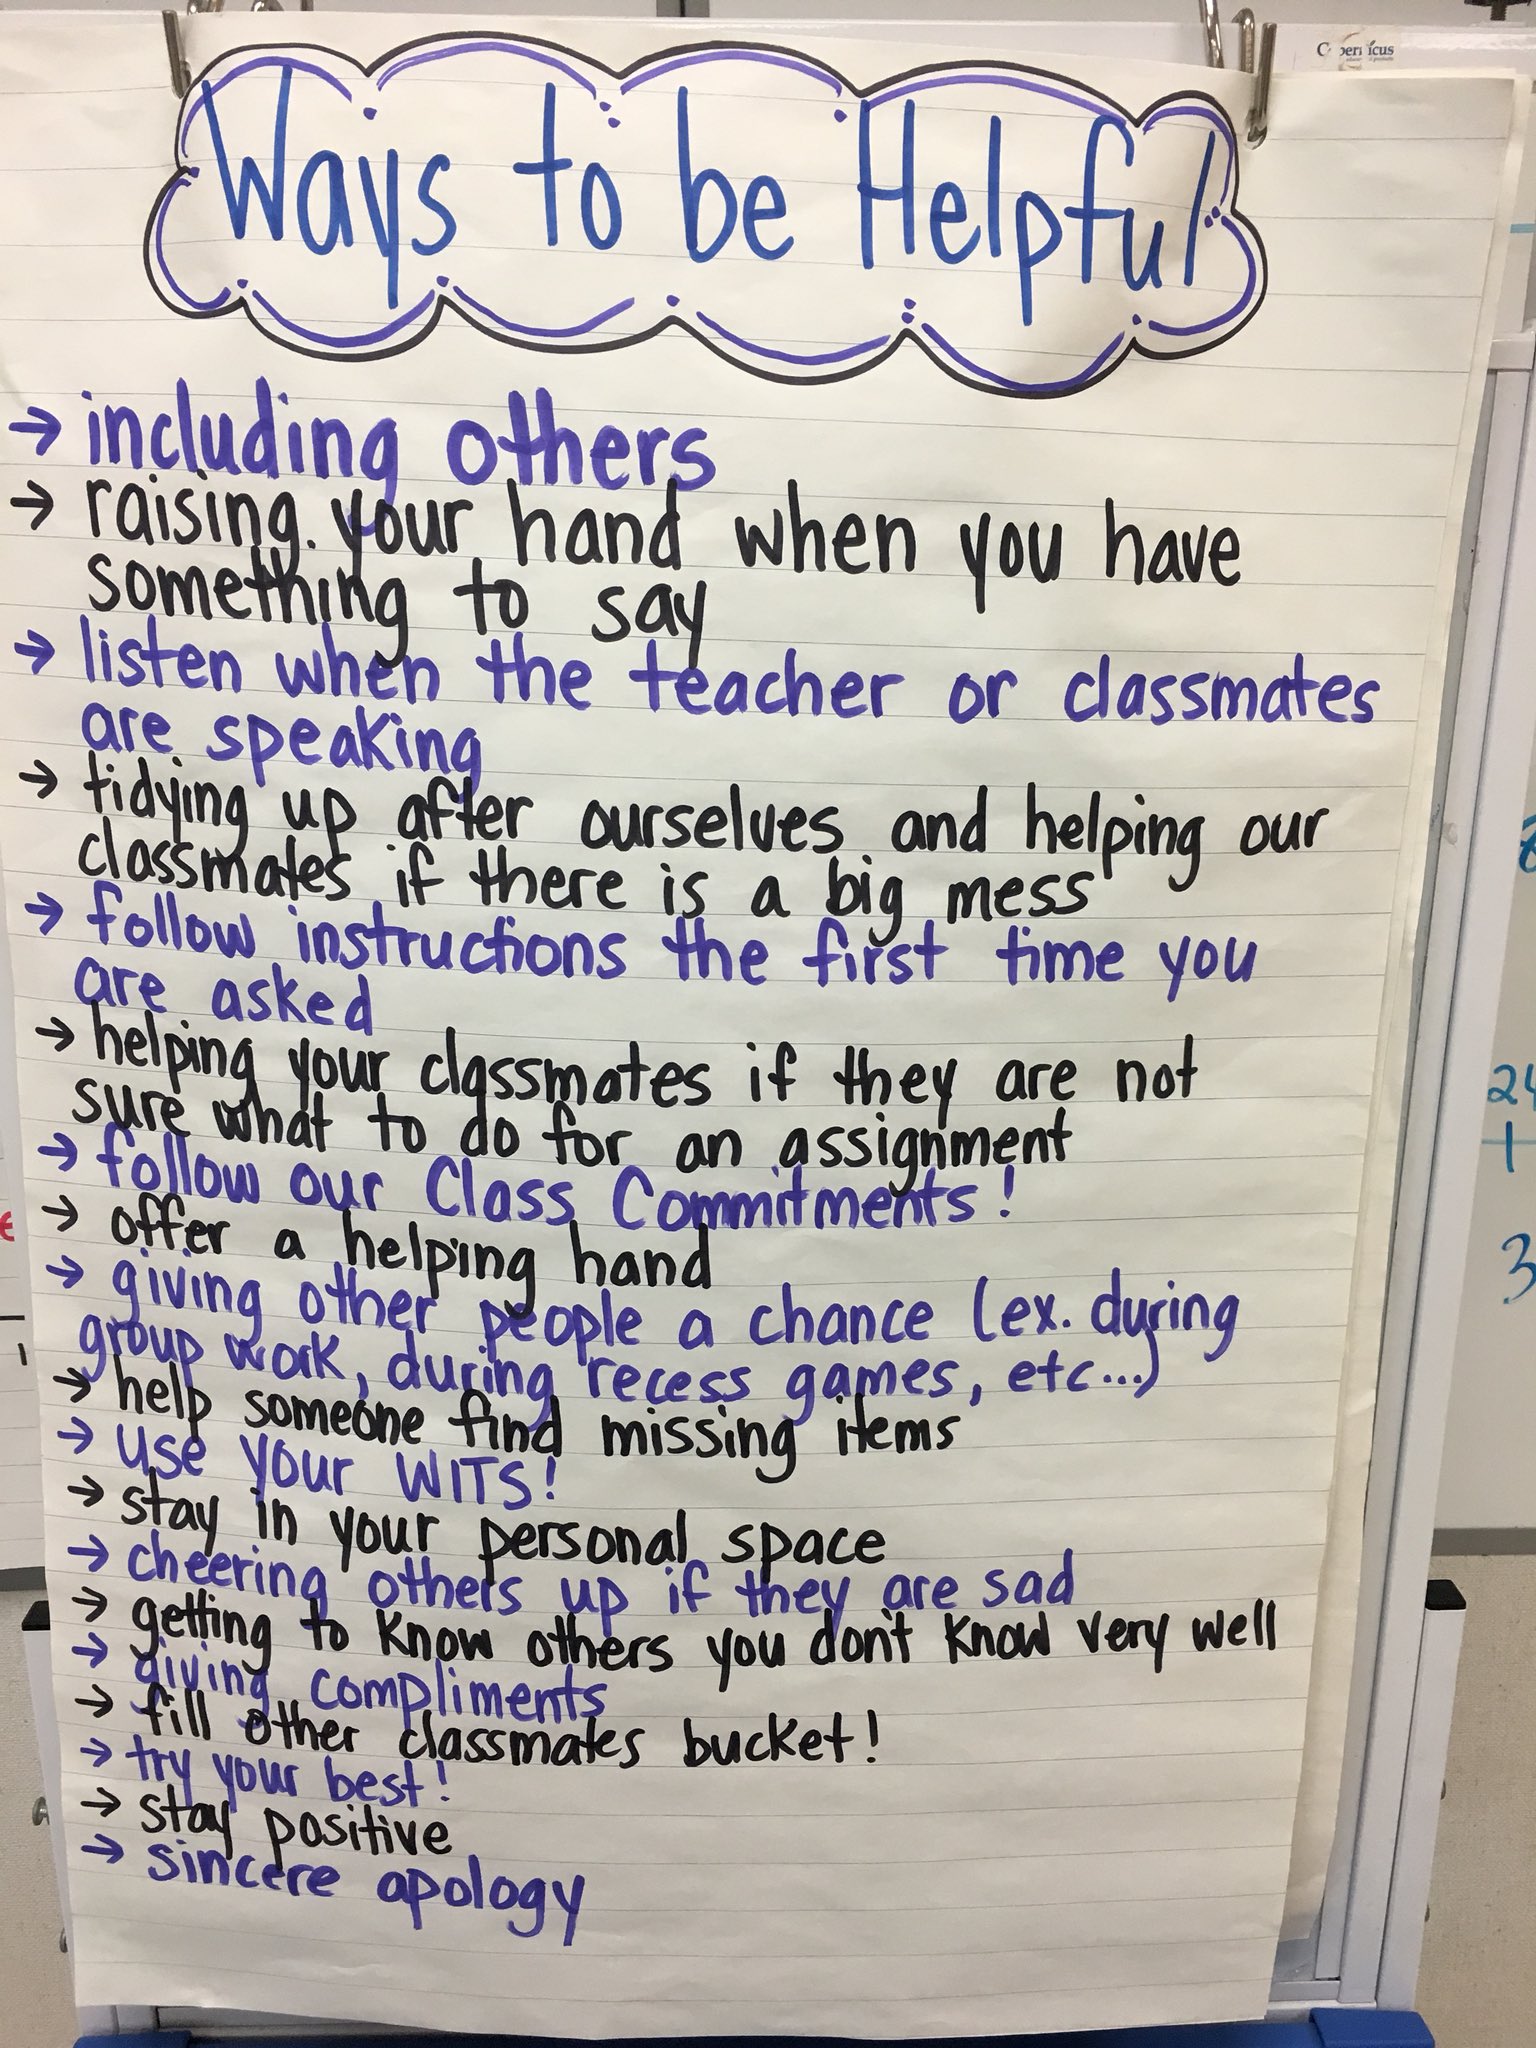 Copernicus
Ways to be Helpful
→ including others
→ raising your hand when you have
something to say
→ listen when the teacher or classmates
are speaking
→ tidying up after ourselves and helping our
classmates if there is a big mess
→ follow instructions the first time you
are asked
→ helping your classmates if they are not
sure what to do for an assignment
→ follow our Class Commitments!
→ offer a helping hand
→ giving other people a chance (ex. during
group work, during recess games, etc...)
→ help someone find missing items
→ use your WITS!
→ stay in your personal space
→ cheering others up if they are sad
→ getting to know others you don't know very well
→ giving compliments
→ fill other classmates bucket!
→ try your best!
→ stay positive
→ sincere apology
24
1
3